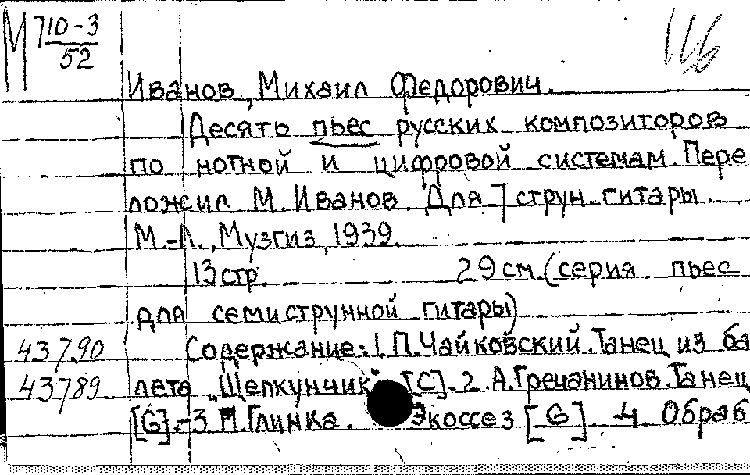 М 710-3
52
Иванов, Михаил Федорович.
Десять пьес русских композиторов
по нотной и цифровой системам. Пере
ложил М. Иванов. Для 7 струн. гитары.
М.-Л., Музгиз, 1939.
13 стр. 29 см. (серия пьес
для семиструнной гитары)
43790 Содержание: 1. П. Чайковский. Танец из ба
43789 лета "Щелкунчик" [C]. 2. А. Гречанинов. Танец
[G].-3. М. Глинка. Экоссез [G]. 4 Обраб